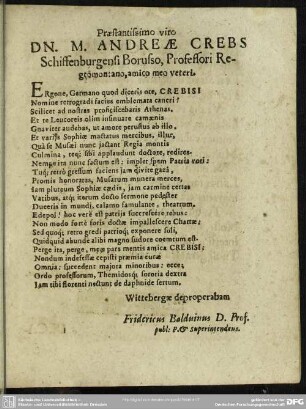 Præstantissimo viro
DN. M. ANDREÆ CREBS
Schiffenburgensi Borusso, Professori Re-
giomontano, amico meo veteri.
Ergone, Germano quod diceris ore, CREBISI
Nomine retrogradi facius emblemata cancri?
Scilicet ad nostras proficiscebaris Athenas,
Et te Leucoreis olim insinuare camœnis
Gnaviter audebas, ut amore petustus ab illo,
Et variis Sophiæ mactatus mercibus, illuc,
Quà se Musæi nunc jactant Regia montis
Culmina, teq; sibi applaudunt doctore, redires.
Nempe ita nunc factum est: implet spem Patria voti:
Tuq; retrò gressum faciens jam divite gazâ,
Promis honoratas, Musarum munera merces,
Jam pluteum Sophiæ cædis, jam carmine certas
Vatibus, atq; iterum docto sermone pedester
Duceris in mundi, calamo famulante, theatrum,
Edepol! hoc verè est patriis succrescere rebus:
Non modo fortè foris doctæ impallescere Chartæ;
Sed quoq; retro gredi patrioq; exponere soli,
Quidquid abunde alibi magno sudore coemtum est.
Perge ita, perge, meæ pars mentis amica CREBISI;
Nondum indefessæ cepisti præmia curæ
Omnia: succedent majora minoribus: ecce;
Ordo professorum, Themidosq; sororia dextra
Jam tibi florenti nectunt de daphnide sertum.
Wittebergæ deproperabam
Fridericus Balduinus D. Prof.
publ. P. & Superintendens.